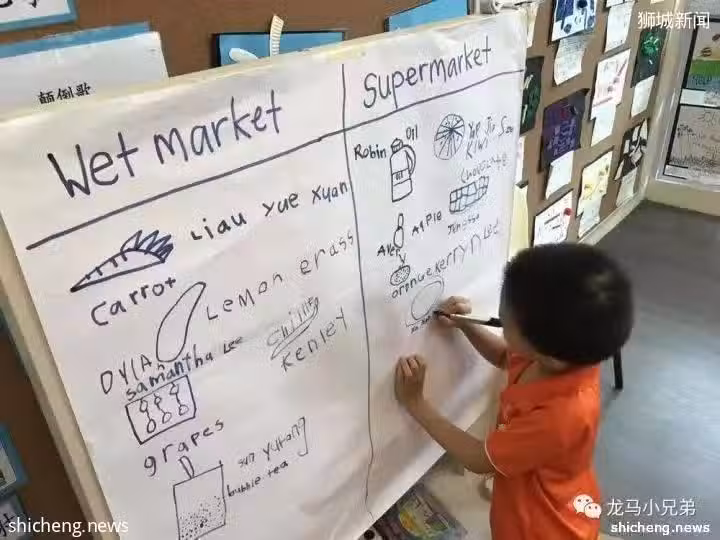 狮城新闻
颠倒歌
Wet market
Supermarket
Liau Yue Xuan
carrot
Lemon erass
DYlA
samantha Lee
chilli
Kenley
grapes
sun yutong
bubble tea
Robin
Oil
Kiwi
chocolate
Apple
Alex
orange Kerryn Lee
shicheng.news
龙马小兄弟
shicheng.news